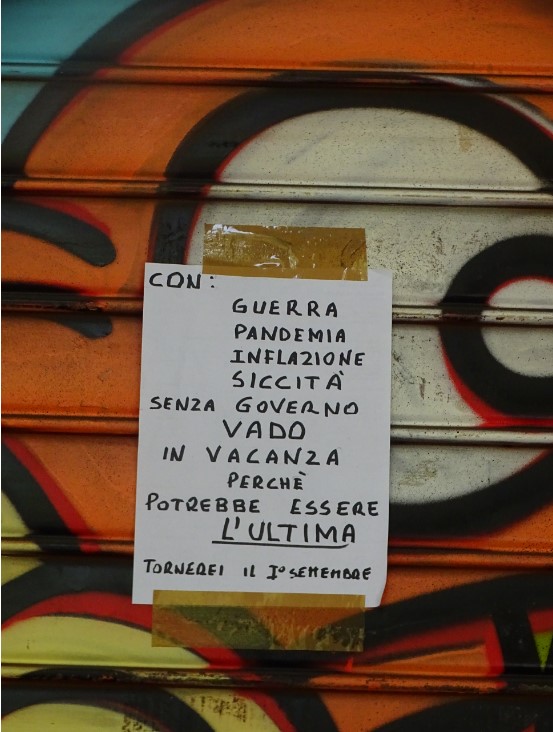 CON:
GUERRA
PANDEMIA
INFLAZIONE
SICCITÀ
SENZA GOVERNO
VADO
IN VACANZA
PERCHÈ
POTREBBE ESSERE
L'ULTIMA
TORNEREI IL I° SETTEMBRE